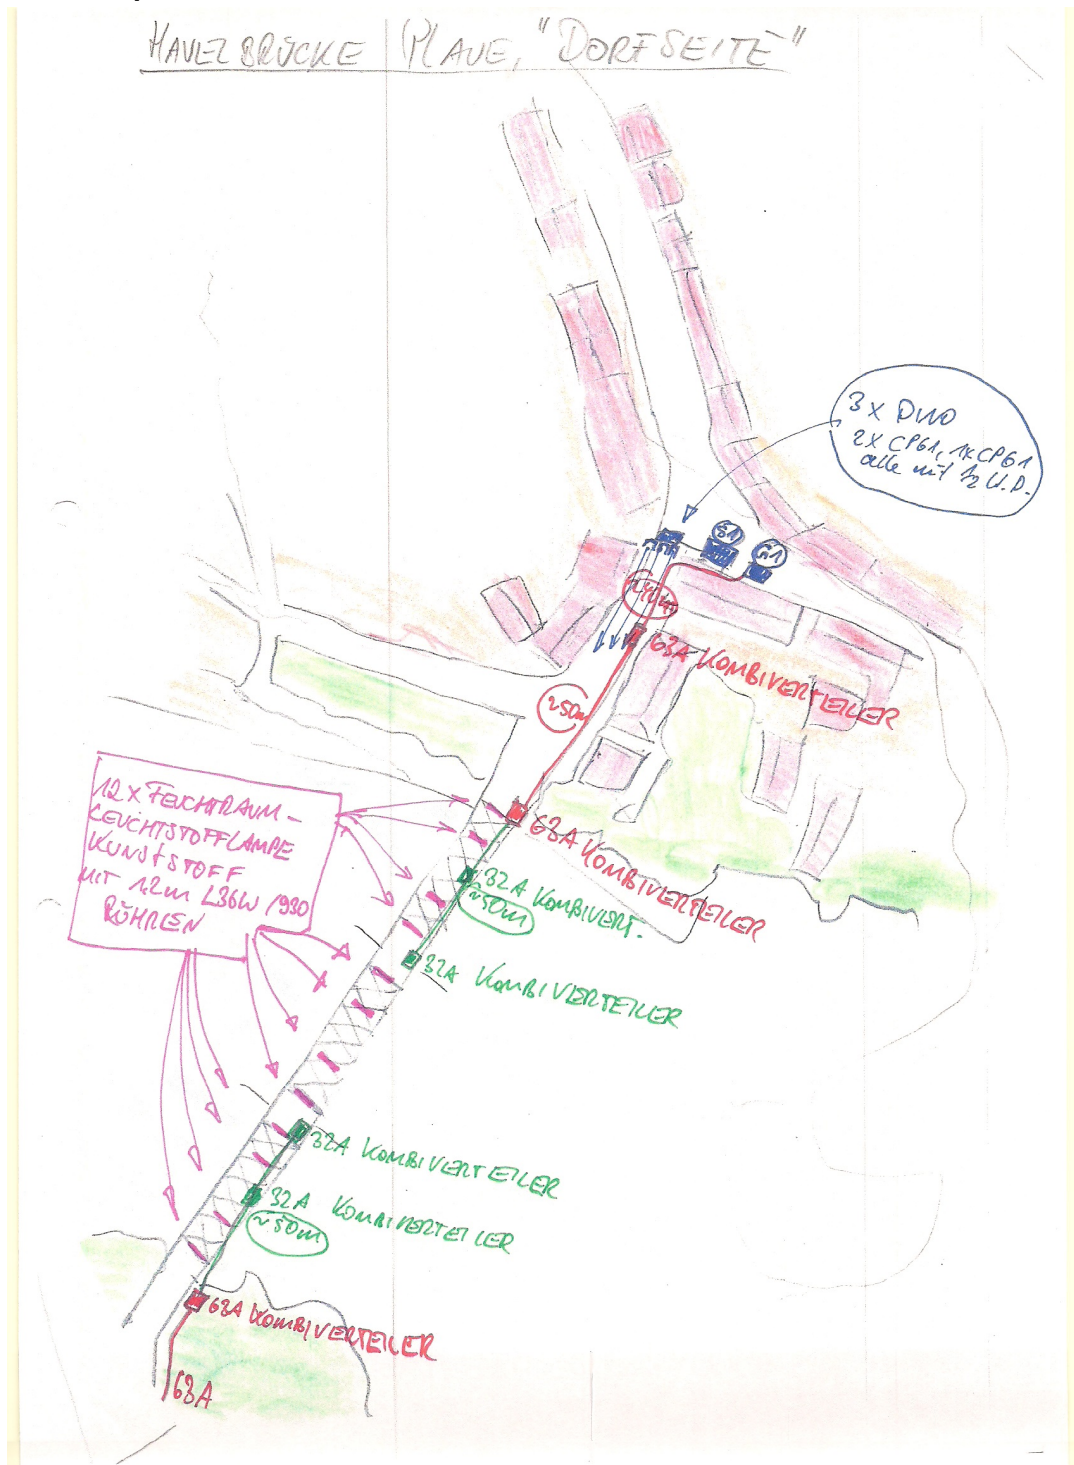 HAVELBRÜCKE PLAUE, "DORFSEITE"
3 x DINO
2x CP61, 1x CP61
alle mit 1/2 W.D.
G1
~50m
63A KOMBIVERTEILER
12 x FEUCHTRAUM-
LEUCHTSTOFFLAMPE
KUNSTSTOFF
MIT 1,2m L36W /930
RÖHREN
63A KOMBIVERTEILER
32A KOMBIVERT.
~50m
32A KOMBIVERTEILER
32A KOMBIVERTEILER
32A KOMBIVERTEILER
~50m
63A KOMBIVERTEILER
63A